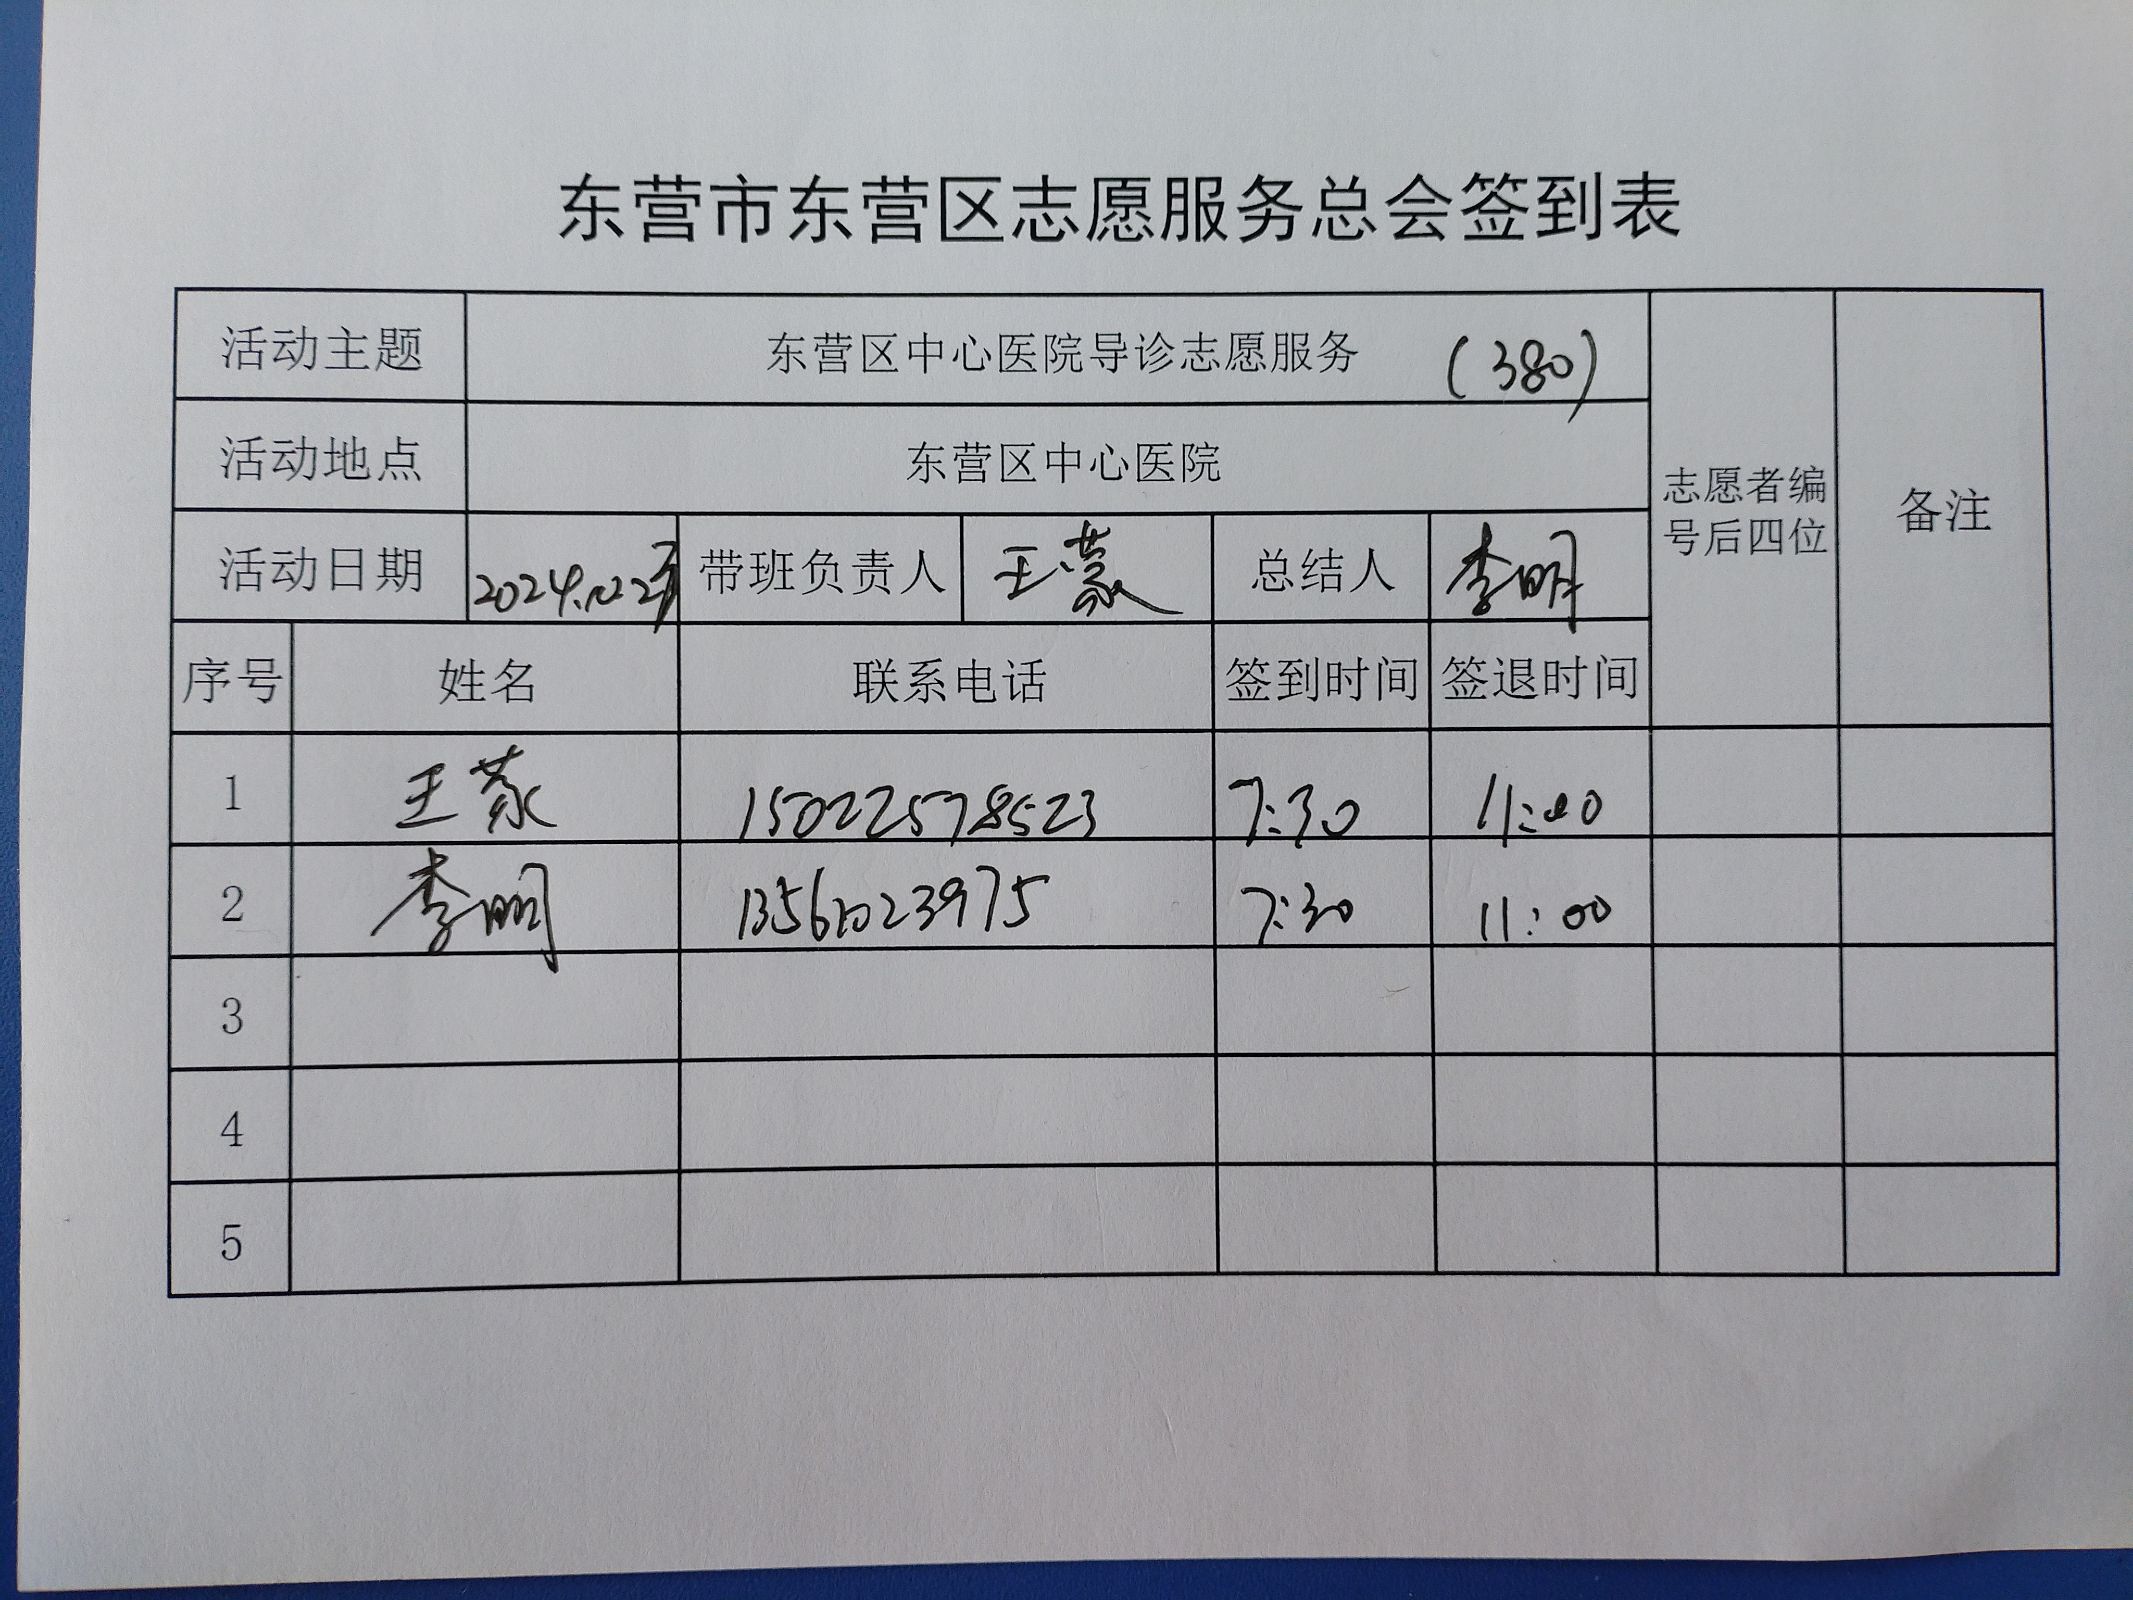 东营市东营区志愿服务总会签到表
活动主题 东营区中心医院导诊志愿服务 (380)
活动地点 东营区中心医院
志愿者编号后四位 备注
活动日期 带班负责人 王蒙 总结人 李明
序号 姓名 联系电话 签到时间 签退时间
1 王蒙 15022578523 7:30 11:00
2 李明 7:30 11:00
3
4
5